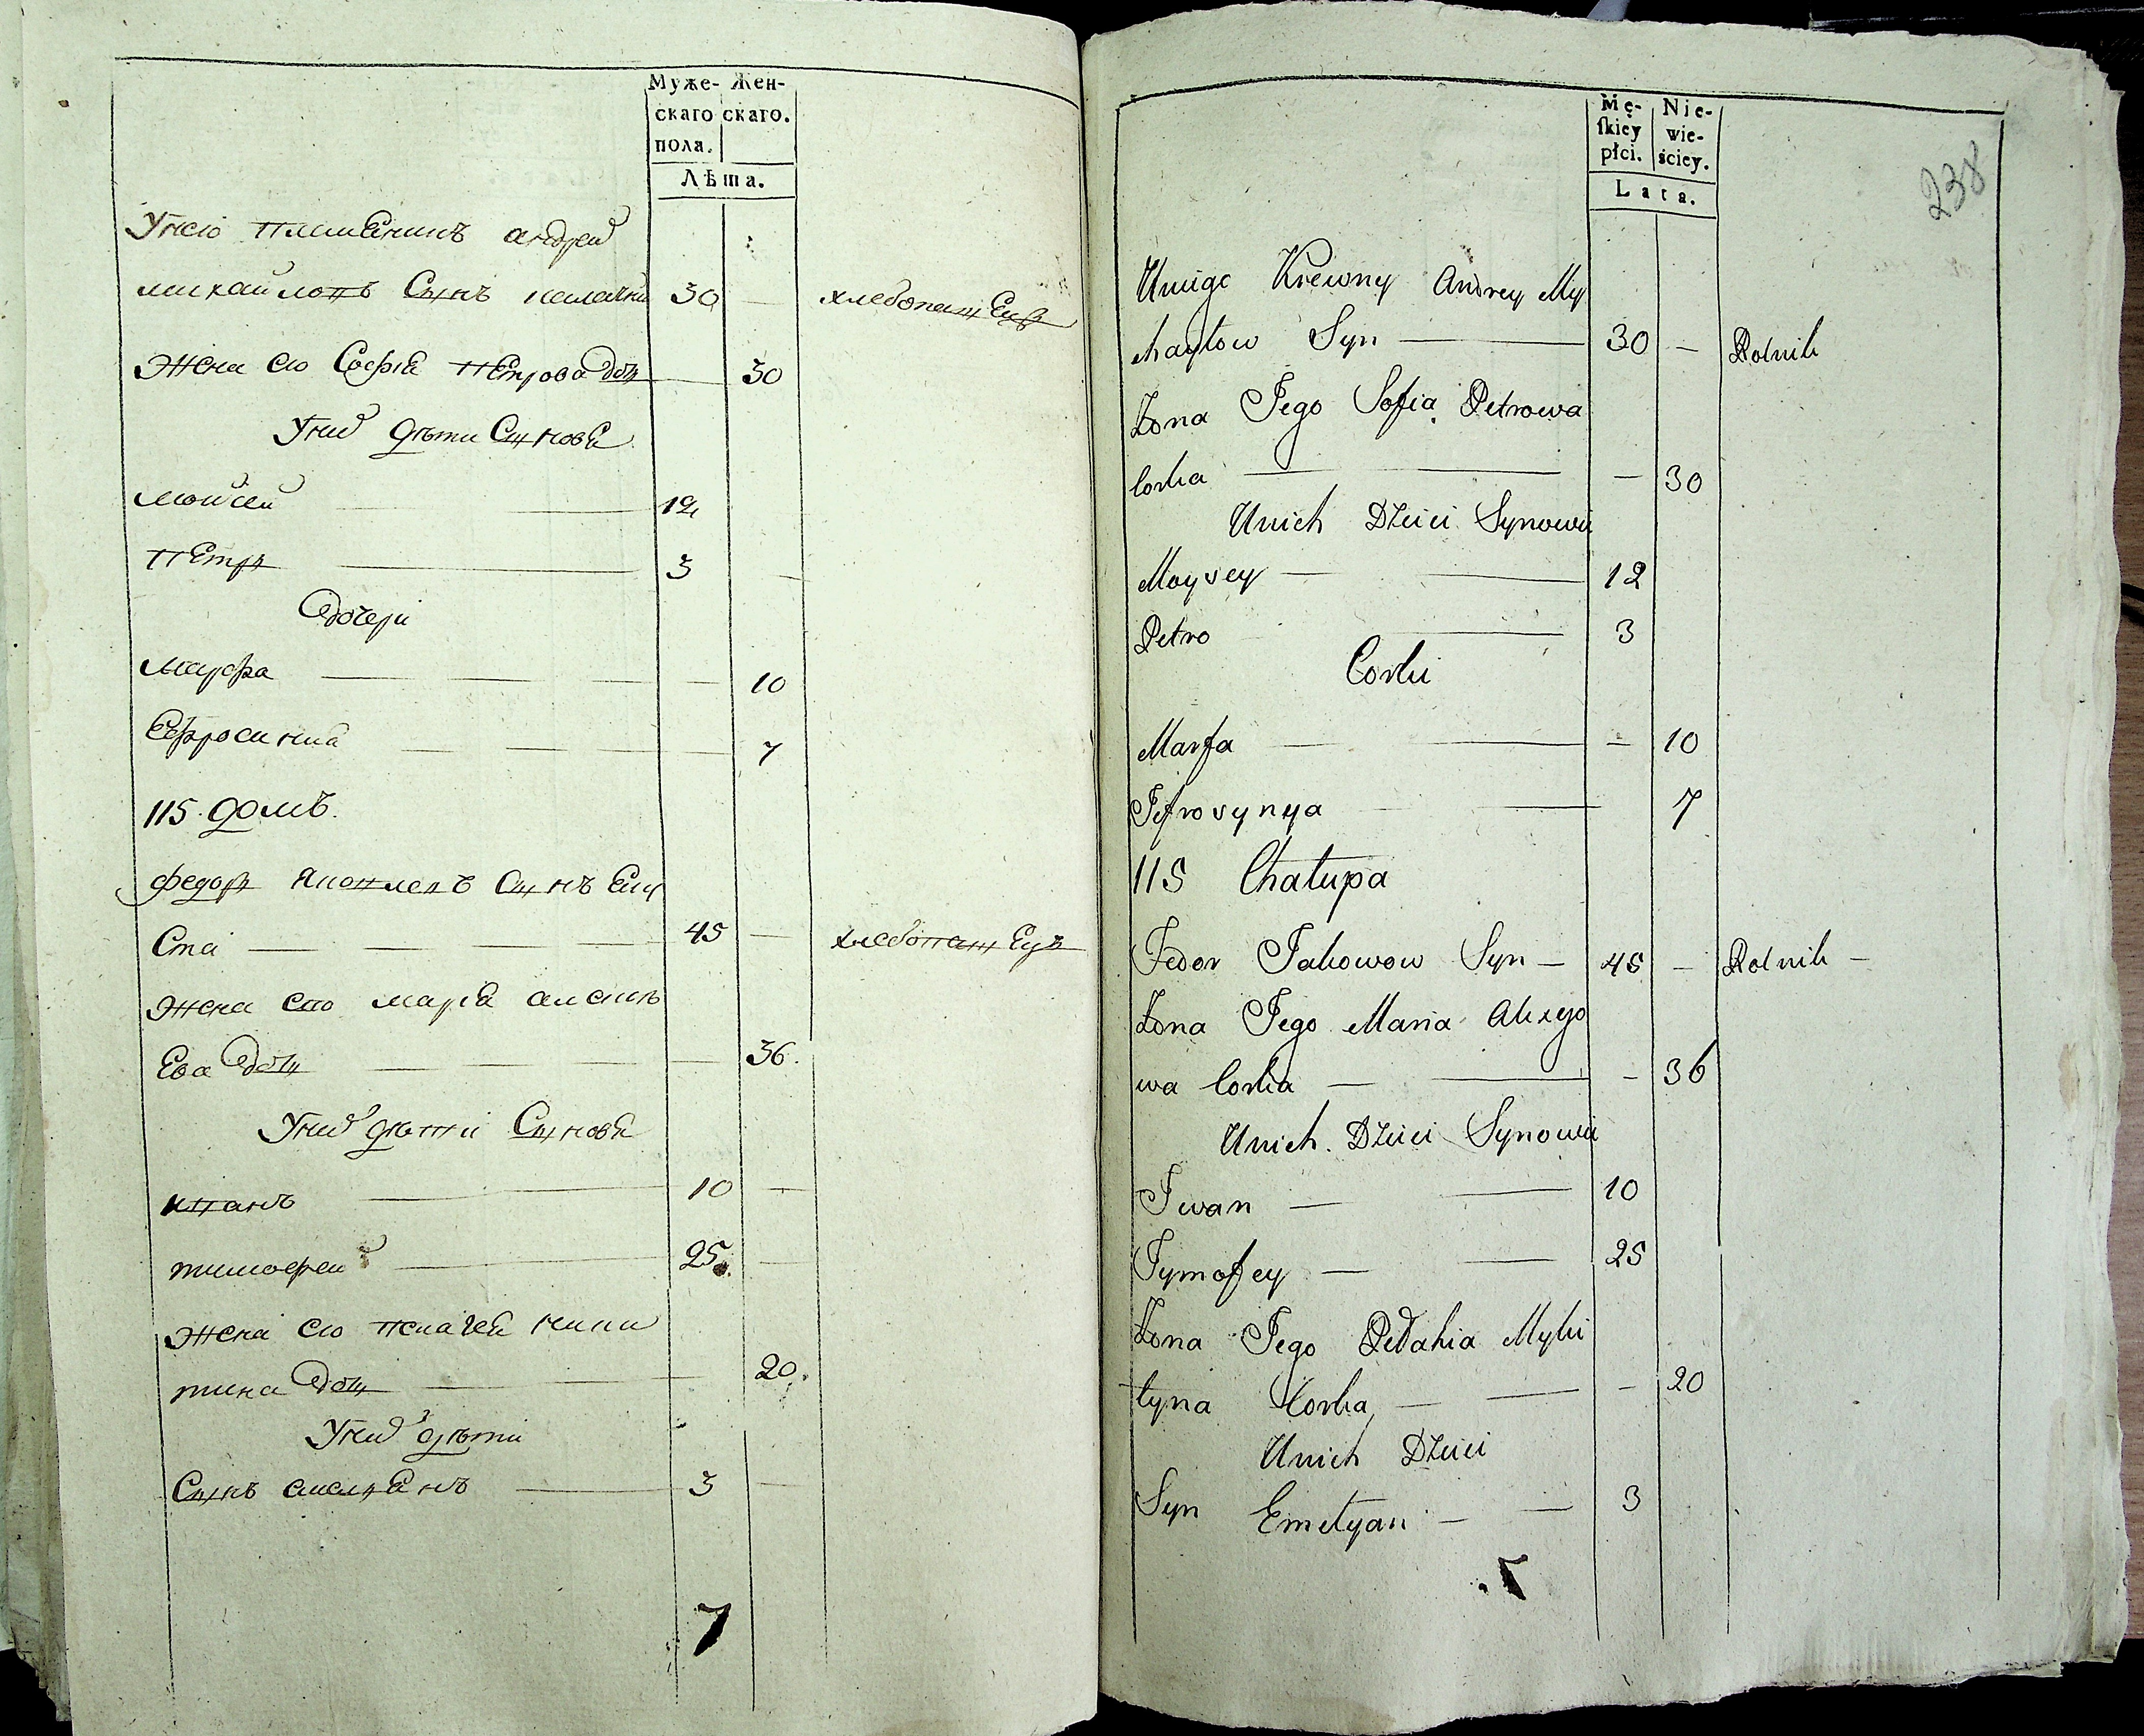 Муже- Жен-
скаго скаго.
пола.
Лѣта.
Унею племенникъ андрей
михаиловъ Сынъ 30 — хлебопашецъ
Жена его Софиа петрова доч — 30
Уних дѣти Синове
мойсей — 12
петръ — 3
дочери
марфа — 10
Ефросиниа — 7
115 домъ.
федоръ Яковлевъ Сынъ
45 — хлебопашецъ
жена его мариа алексѣ
Ева доч — 36.
Уних дѣти Синове
иванъ — 10 —
тимофей — 25. —
жена его пелагеа ники
тина доч — 20.
Уних дѣти
Сынъ емелианъ — 3 —
7
Mę- Nie-
ſkiey wie-
płci. ściey.
Lata.
238
Uniego Krewny Andrey My
chayłow Syn — 30 — Rolnik
Żona Jego Sofia Petrowa
Corka — — 30
Unich Dzieci Synowie
Moysey — 12
Petro — 3
Corki
Marfa — — 10
Jefrosynya — 7
115 Chałupa
Fedor Jakowow Syn — 45 — Rolnik —
Żona Jego Maria Alexyo
wa Corka — — 36
Unich. Dzieci Synowie
Iwan — 10
Tymofey — 25
Żona Jego Pełahia Myki
tyna Corka — — 20
Unich Dzieci
Syn Emelyan — 3